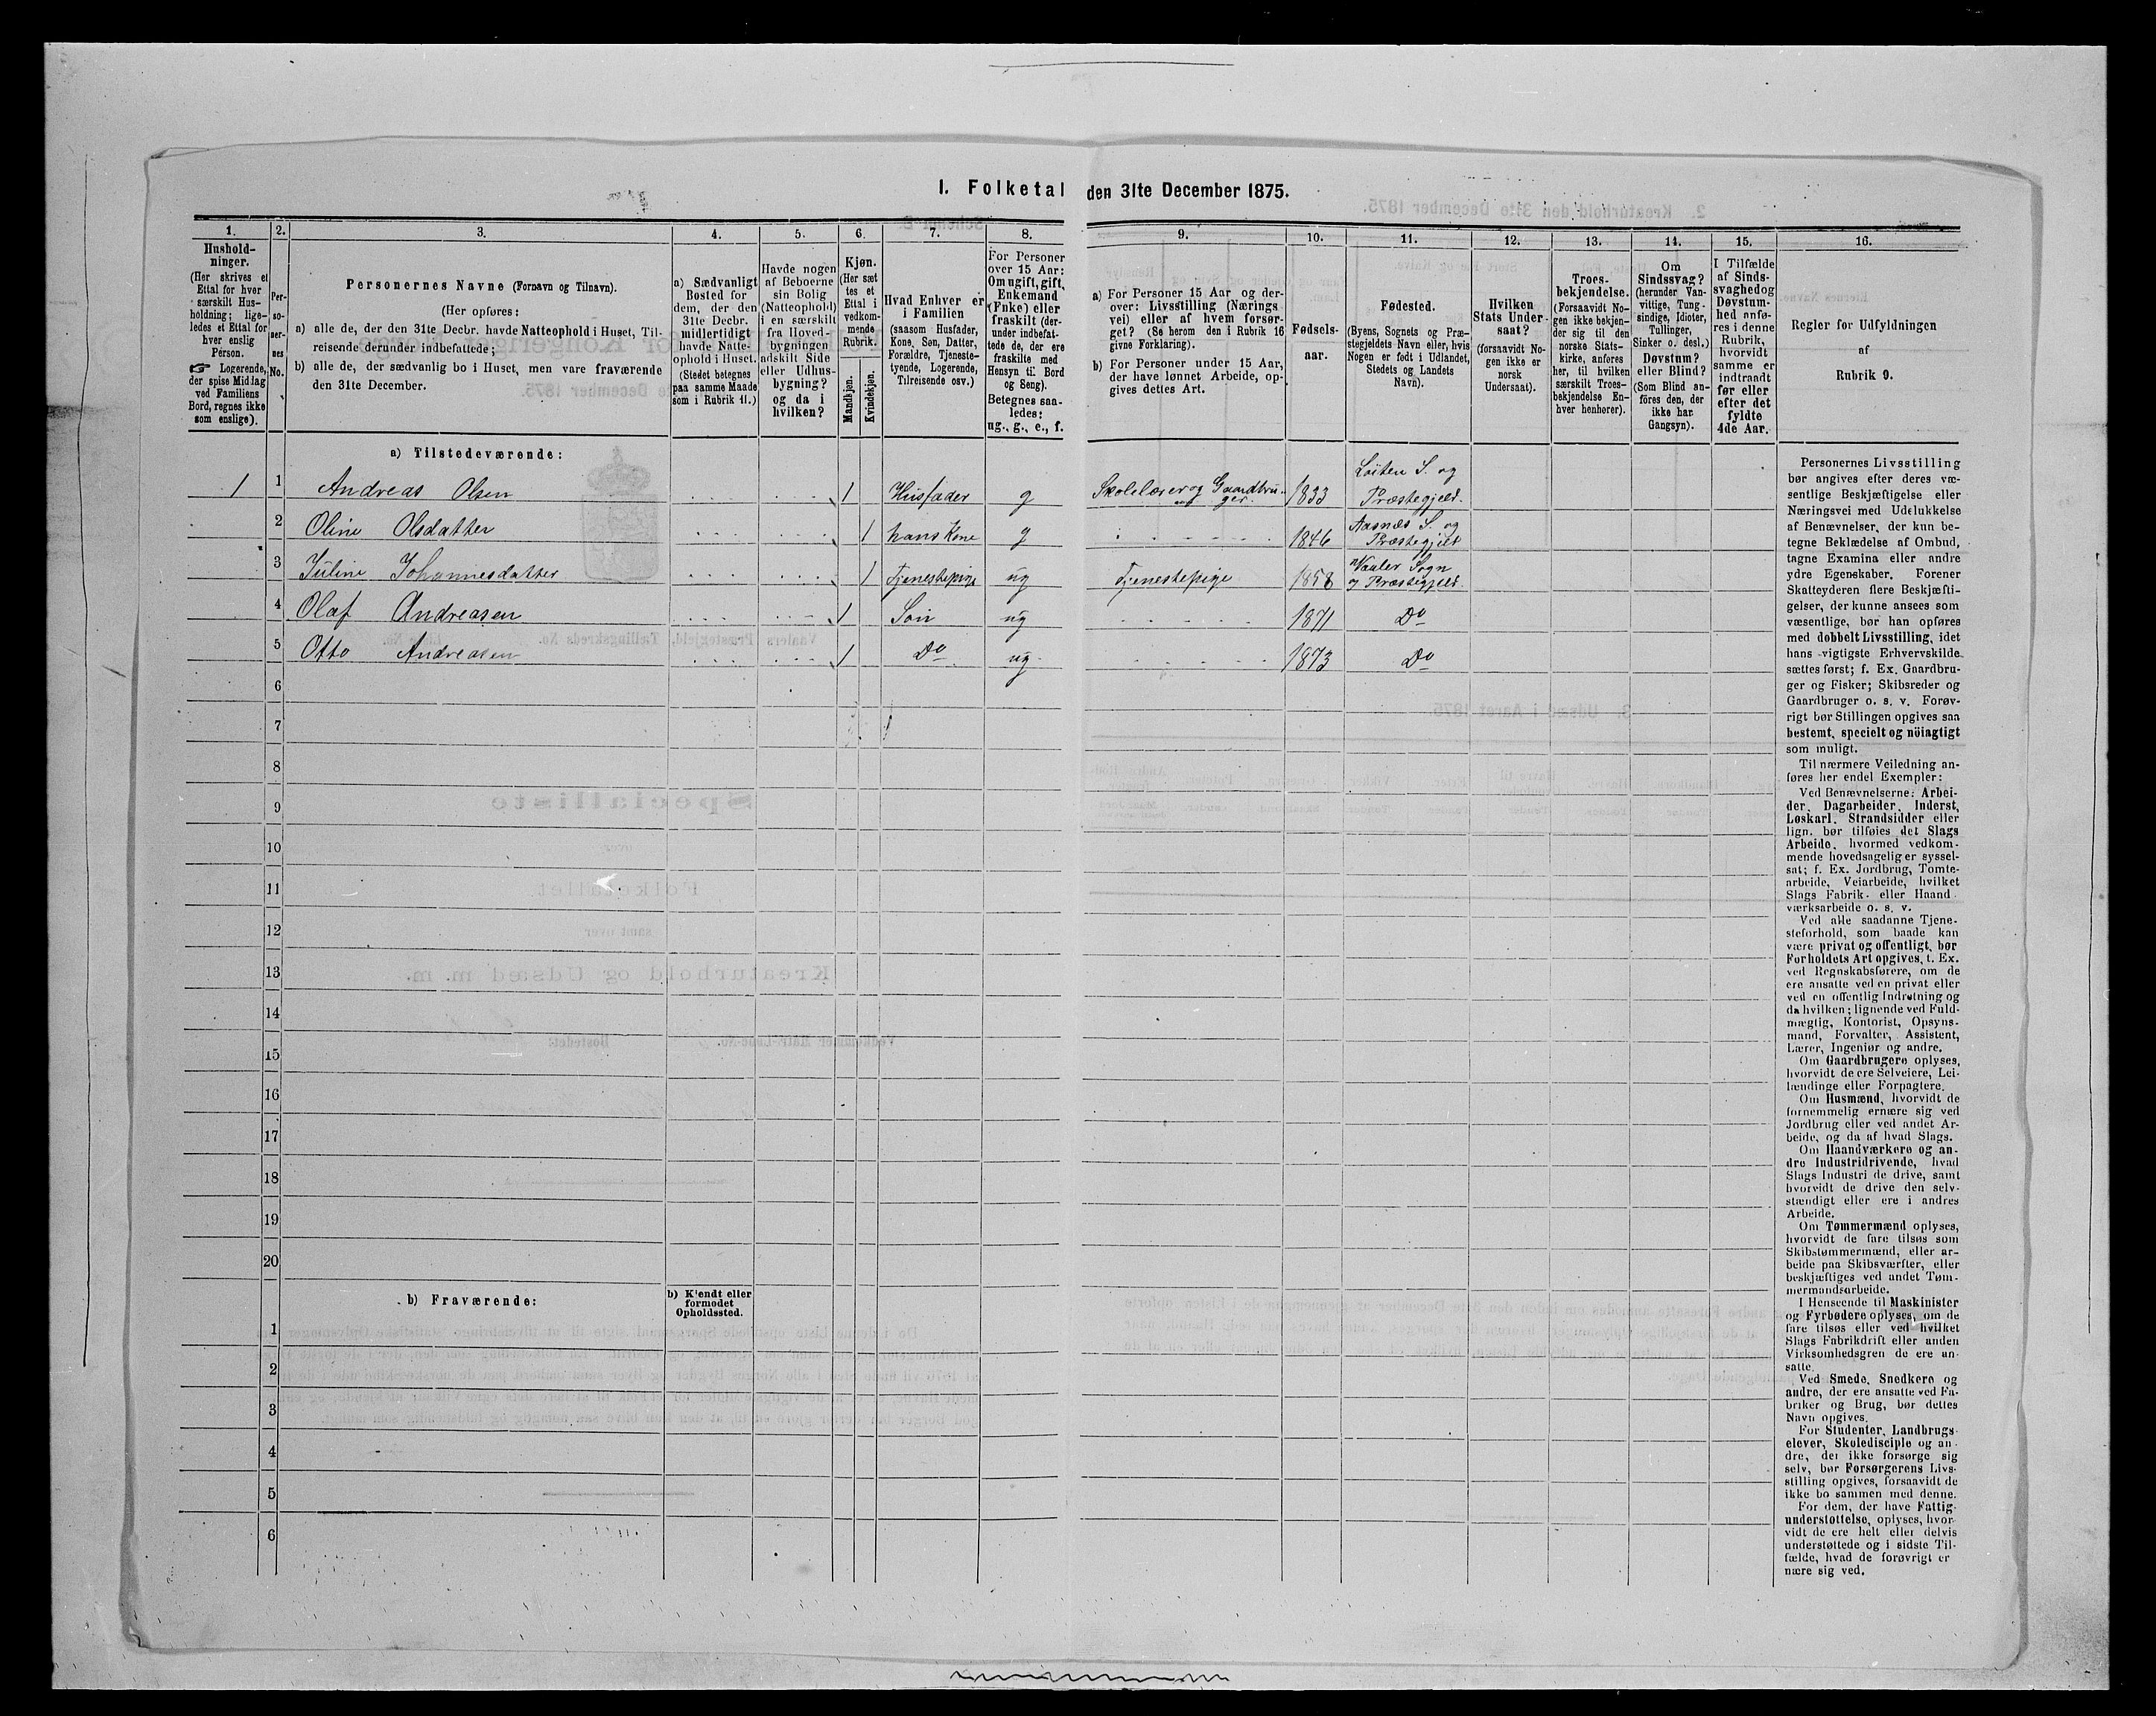 1. Folketal den 31te December 1875.
1.
Hushold-
ninger.
(Her skrives et
Ettal for hver
særskilt Hus-
holdning; lige-
ledes et Ettal for
hver enslig
Person.
☞ Logerende,
der spise Middag
ved Familiens
Bord, regnes ikke
som enslige).
2.
Per-
so-
ner-
nes
No.
3.
Personernes Navne (Fornavn og Tilnavn).
(Her opføres:
a) alle de, der den 31te Decbr. havde Natteophold i Huset, Til-
reisende derunder indbefattede;
b) alle de, der sædvanlig bo i Huset, men vare fraværende
den 31te December.
4.
a) Sædvanligt
Bosted for
dem, der den
31te Decbr.
midlertidigt
havde Natte-
ophold i Huset.
(Stedet betegnes
paa samme Maade
som i Rubrik 11.)
5.
Havde nogen
af Beboerne
sin Bolig
(Natteophold)
i en særskilt
fra Hoved-
bygningen
adskilt Side
eller Udhus-
bygning?
og da i
hvilken?
6.
Kjøn.
(Her sæt
tes et
Ettal i
vedkom-
mende
Rubrik.
Mandkjøn.
Kvindekjøn.
7.
Hvad Enhver er
i Familien
(saasom Husfader,
Kone, Søn, Datter,
Forældre, Tjeneste-
tyende, Logerende,
Tilreisende osv.)
8.
For Personer
over 15 Aar:
Om ugift, gift,
Enkemand
(Enke) eller
fraskilt (der-
under indbefat-
tede de, der ere
fraskilte med
Hensyn til Bord
og Seng).
Betegnes saa-
ledes:
ug., g., e., f.
9.
a) For Personer 15 Aar og der-
over: Livsstilling (Nærings
vei) eller af hvem forsør-
get? (Se herom den i Rubrik 16
givne Forklaring).
b) For Personer under 15 Aar,
der have lønnet Arbeide, op-
gives dettes Art.
10.
Fødsels-
aar.
11.
Fødested.
(Byens, Sognets og Præ-
stegjeldets Navn eller, hvis
Nogen er født i Udlandet,
Stedets og Landets
Navn).
12.
Hvilken
Stats Under-
saat?
(forsaavidt No-
gen ikke er
norsk
Undersaat).
13.
Troes-
bekjendelse.
(Forsaavidt No-
gen ikke bekjen-
der sig til den
norske Stats-
kirke, anføres
her, til hvilken
særskilt Troes-
bekjendelse En-
hver henhører).
14.
Om
Sindssvag?
(herunder Van-
vittige, Tung-
sindige, Idioter,
Tullinger,
Sinker o. desl.)
Døvstum?
eller Blind?
(Som Blind an-
føres den, der
ikke har
Gangsyn).
15.
I Tilfælde
af Sinds-
svaghed og
Døvstum-
hed anfø-
res i denne
Rubrik,
hvorvidt
samme er
indtraadt
før eller
efter det
fyldte
4de Aar.
16.
Regler for Udfyldningen
af
Rubrik 9.
a) Tilstedeværende:
1 1 Andreas Olsen 1 Husfader g Skolelærer og Gaardbruger. 1833 Löiten S. og Præstegjeld.
2 Oline Olsdatter 1 hans Kone g 1846 Aasnæs S. og Præstegjeld
3 Juline Johannesdatter 1 Tjenestepige ug Tjenestepige 1858 Vaaler Sogn og Præstegjeld.
4 Olaf Andreasen 1 Sön ug 1871 Do
5 Otto Andreasen 1 Do ug 1873 Do
6
7
8
9
10
11
12
13
14
15
16
17
18
19
20
b) Fraværende:
b) Kjendt eller
formodet
Opholdssted.
1
2
3
4
5
6
Personernes Livsstilling
bør angives efter deres væ-
sentlige Beskjæftigelse eller
Næringsvei med Udelukkelse
af Benævnelser, der kun be-
tegne Beklædelse af Ombud,
tagne Examina eller andre
ydre Egenskaber. Forener
Skatteyderen flere Beskjæfti-
gelser, der kunne ansees som
væsentlige, bør han opføres
med dobbelt Livsstilling, idet
hans vigtigste Erhvervskilde
sættes først; f. Ex. Gaardbru-
ger og Fisker; Skibsreder og
Gaardbruger o. s. v. Forøv-
rigt bør Stillingen opgives saa
bestemt, specielt og nöiagtigt
som muligt.
Til nærmere Veiledning an-
føres her endel Exempler:
Ved Benævnelserne: Arbei-
der, Dagarbeider, Inderst,
Løskarl, Strandsidder eller
lign. bør tilføies det Slags
Arbeide, hvormed vedkom-
mende hovedsagelig er syssel-
sat; f. Ex. Jordbrug, Tomte-
arbeide, Veiarbeide, hvilket
Slags Fabrik- eller Haand-
værksarbeide o. s. v.
Ved alle saadanne Tjene-
steforhold, som baade kan
være privat og offentligt, bør
Forholdets Art opgives, f. Ex.
ved Regnskabsførere, om de
ere ansatte ved en privat eller
ved en offentlig Indretning og
da hvilken; lignende ved Fuld-
mægtig, Kontorist, Opsyns-
mand, Forvalter, Assistent,
Lærer, Ingeniør og andre.
Om Gaardbrugere oplyses,
hvorvidt de ere Selveiere, Lei-
lændinge eller Forpagtere.
Om Husmænd, hvorvidt de
fornemmelig ernære sig ved
Jordbrug eller ved andet Ar-
beide, og da af hvad Slags.
Om Haandværkere og an-
dre Industridrivende, hvad
Slags Industri de drive, samt
hvorvidt de drive den selv-
stændigt eller ere i andres
Arbeide.
Om Tømmermænd oplyses,
hvorvidt de fare tilsøs som
Skibstømmermænd, eller ar-
beide paa Skibsværfter, eller
beskjæftiges ved andet Tøm-
mermandsarbeide.
I Henseende til Maskinister
og Fyrbødere oplyses, om de
fare tilsøs eller ved hvilket
Slags Fabrikdrift eller anden
Virksomhedsgren de ere an-
satte.
Ved Smede, Snedkere og
andre, der ere ansatte ved Fa-
briker og Brug, bør dettes
Navn opgives.
For Studenter, Landbrugs-
elever, Skoledisciple og an-
dre, der ikke forsørge sig
selv, bør Forsørgerens Livs-
stilling opgives, forsaavidt de
ikke bo sammen med denne.
For dem, der have Fattig-
understøttelse, oplyses, hvor-
vidt de ere helt eller delvis
understøttede og i sidste Til-
fælde, hvad de forøvrigt er
nære sig ved.